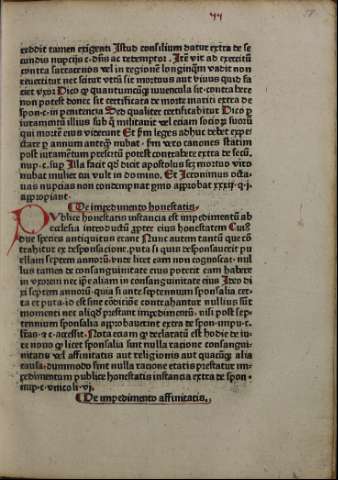 reddit tamen exigenti Istud consilium datur extra de se
cundis nupcijs c. dn̄s ac redemptor. Itē vir ad exercitū
contra sarracenos vel in regionē longinqm̄ vadit non
reuertitur nec scitur vtrū sit mortuus aut viuus quid fa
ciet vxor Dico ꝙ quantumcūqꝫ iuuencula sit contrahere
non potest donec sit certificata de morte mariti extra de
spon. c. in pn̄tencia Sed qualiter certificabitur Dico ꝑ
iuramentū illius sub q̄ militauit vel eciam socioꝝ suoꝝ
qui mortē eius viderunt Et scd̄m leges adhuc debet expe
ctare ꝑ annum anteqꝫ nubat. scd̄m vero canones statim
post iuramentum prescr̄tū potest contrahere extra de secū.
nup. c. sup Illa facit qd̄ dicit apostolus ꝙ mortuo viro
nubat mulier cui vult in domino. Et Ieronimus octa
uas nupcias non contempnat ꝓmo approbat xxxij. q. j.
aꝑopiant.
De impedimento honestatis.
Publice honestatis instancia est impedimentū ab
ecclesia introductū ꝓpter eius honestatem Cuiꝰ
due species antiquitus erant Nunc autem tantū que cō
trahitur ex desponsacione. puta si quis desponsauerit pu
ellam septem annoꝝ. vnde licet eam non cognoscat. nul
lus tamen de consanguinitate eius poterit eam habere
in vxorem nec ip̄e aliam in consanguinitate eius Ideo di
xi septem annoꝝ. quia si ante septennium sponsalia cer
ta et pura. id est sine cōdicōe contrahantur nullius sūt
momenti nec aliqd̄ prestant impedimentū. nisi post sep
tennium sponsalia approbauerint extra de spon. impu. c.
lr̄as. ⁊ c. accessit. Nota eciam ꝙ declaratū est hodie de iu
re nouo ꝙ licet sponsalia sint nulla racione consangui
nitatis vel affinitatis aut religionis aut quacūqꝫ alia
causa. dummodo sint nulla racione etatis prestatur im
pedimentum publice honestatis instancia extra de spon
sup. c. vnico. li. vj.
De impedimento affinitatis.